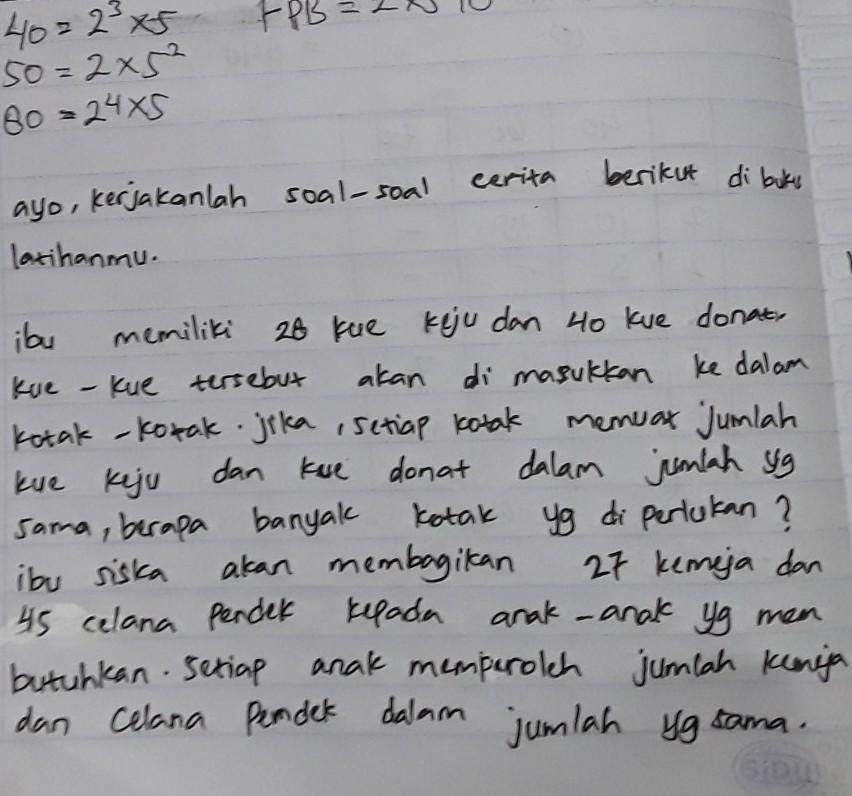 40 = 2³ x 5 FPB = 2 x 5 10
50 = 2 x 5²
80 = 24 x 5
ayo, kerjakanlah soal-soal cerita berikut di buku
latihanmu.
ibu memiliki 28 kue keju dan 40 kue donat.
kue - kue tersebut akan di masukkan ke dalam
kotak - kotak. jika, setiap kotak memuat jumlah
kue keju dan kue donat dalam jumlah yg
sama, berapa banyak kotak yg di perlukan?
ibu siska akan membagikan 27 kemeja dan
45 celana pendek kepada anak - anak yg mem
butuhkan. setiap anak memperoleh jumlah kemeja
dan celana pendek dalam jumlah yg sama.
SIDU